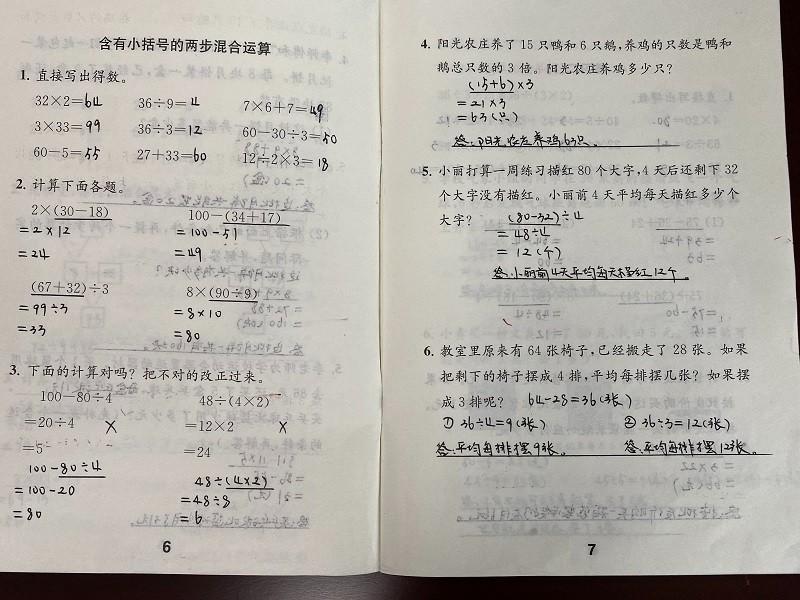 含有小括号的两步混合运算
1. 直接写出得数。
32×2=64 36÷9=4 7×6+7=49
3×33=99 36÷3=12 60-30÷3=50
60-5=55 27+33=60 12÷2×3=18
2. 计算下面各题。
2×(30-18) 100-(34+17)
=2×12 =100-51
=24 =49
(67+32)÷3 8×(90÷9)
=99÷3 =8×10
=33 =80
3. 下面的计算对吗？把不对的改正过来。
100-80÷4 48÷(4×2)
=20÷4 × =12×2 ×
=5 =24
100-80÷4 48÷(4×2)
=100-20 =48÷8
=80 =6
6
4. 阳光农庄养了15只鸭和6只鹅，养鸡的只数是鸭和
鹅总只数的3倍。阳光农庄养鸡多少只？
(15+6)×3
=21×3
=63(只)
答:阳光农庄养鸡63只。
5. 小丽打算一周练习描红80个大字，4天后还剩下32
个大字没有描红。小丽前4天平均每天描红多少个
大字？ (80-32)÷4
=48÷4
=12(个)
答:小丽前4天平均每天描红12个。
6. 教室里原来有64张椅子，已经搬走了28张。如果
把剩下的椅子摆成4排，平均每排摆几张？如果摆
成3排呢？ 64-28=36(张)
① 36÷4=9(张) ② 36÷3=12(张)
答:平均每排摆9张。 答:平均每排摆12张。
7